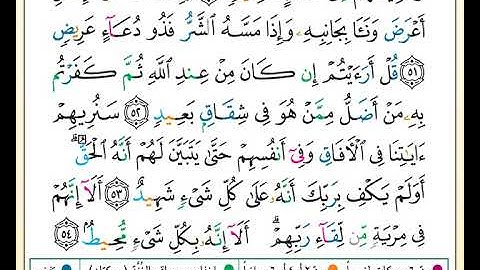 أَعْرَضَ وَنَـَٔا بِجَانِبِهِۦ وَإِذَا مَسَّهُ ٱلشَّرُّ فَذُو دُعَآءٍ عَرِيضٍ
٥١ قُلْ أَرَءَيْتُمْ إِن كَانَ مِنْ عِندِ ٱللَّهِ ثُمَّ كَفَرْتُم
بِهِۦ مَنْ أَضَلُّ مِمَّنْ هُوَ فِى شِقَاقٍۭ بَعِيدٍ ٥٢ سَنُرِيهِمْ
ءَايَـٰتِنَا فِى ٱلْـَٔافَاقِ وَفِىٓ أَنفُسِهِمْ حَتَّىٰ يَتَبَيَّنَ لَهُمْ أَنَّهُ ٱلْحَقُّ ۗ
أَوَلَمْ يَكْفِ بِرَبِّكَ أَنَّهُۥ عَلَىٰ كُلِّ شَىْءٍ شَهِيدٌ ٥٣ أَلَآ إِنَّهُمْ
فِى مِرْيَةٍ مِّن لِّقَآءِ رَبِّهِمْ ۗ أَلَآ إِنَّهُۥ بِكُلِّ شَىْءٍ مُّحِيطٌۢ ٥٤